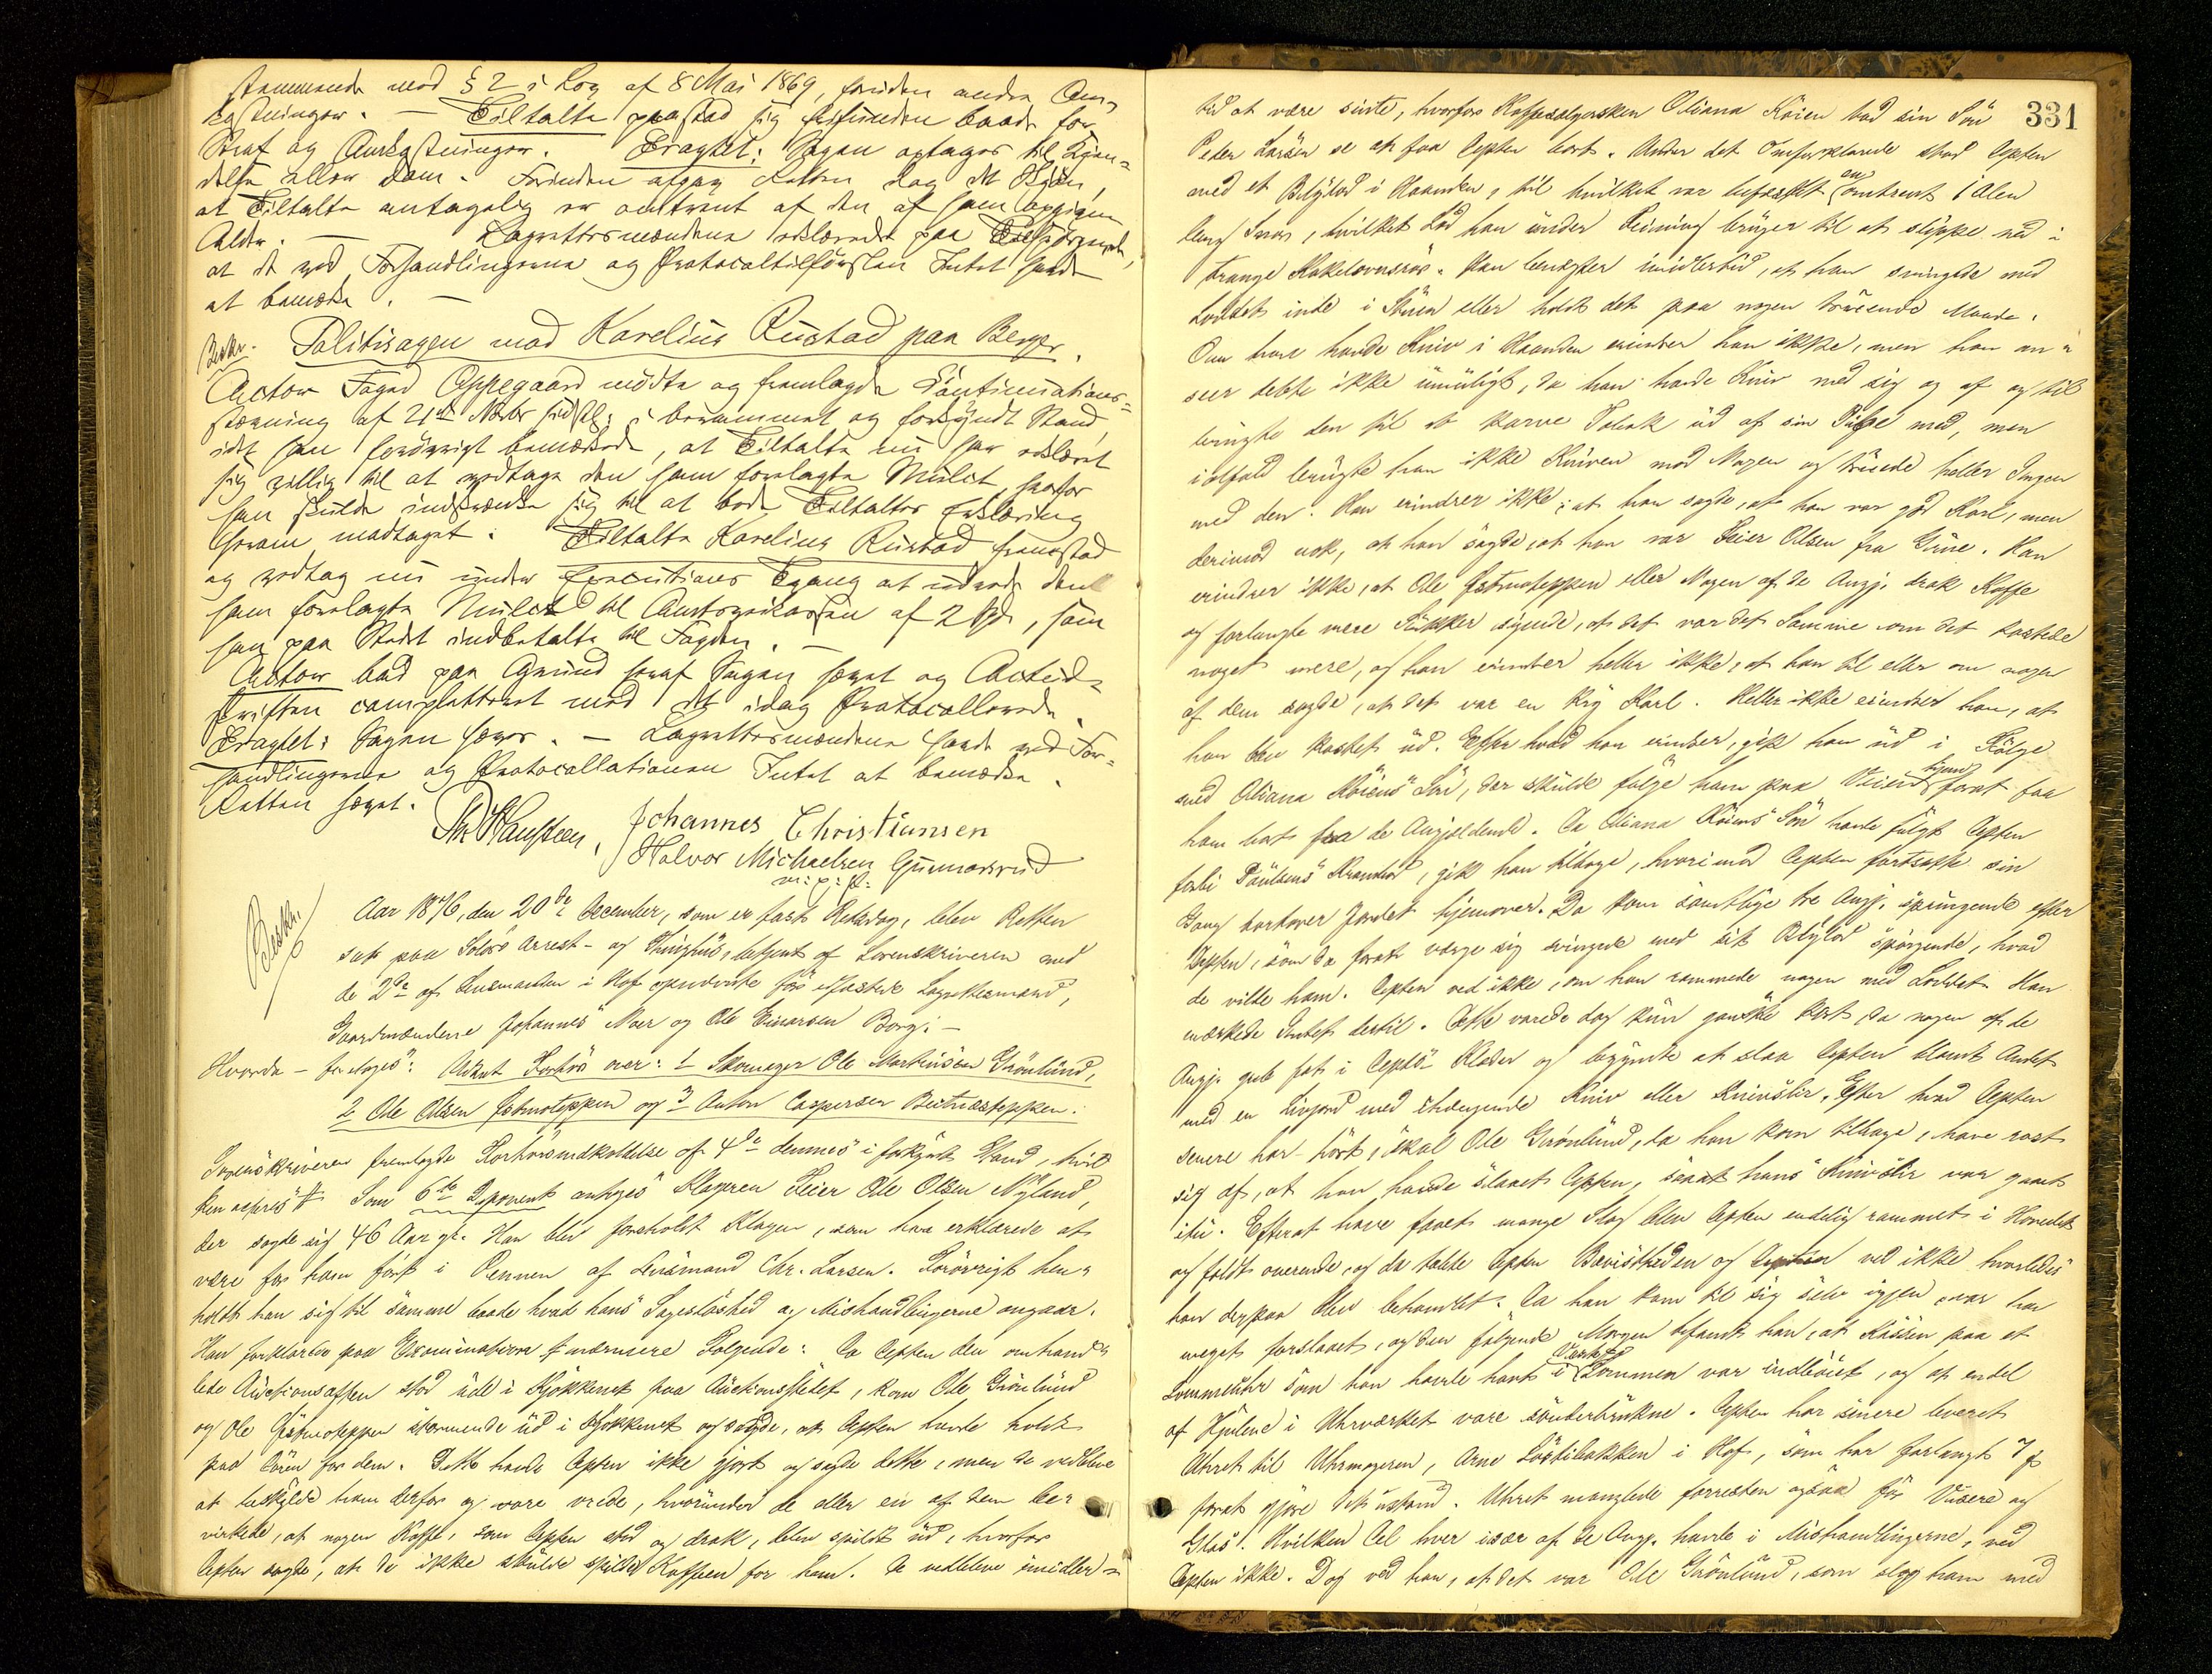 stemmende med § 2 i Lov af 8 Mai 1869, foruden andre Om-
kostninger. — Tiltalte paastod sig frifunden baade for
Straf og Omkostninger. Eragtet: Sagen optages til Kjen-
delse eller Dom. Forinden afgav Retten dog det Skjøn,
at Tiltalte antagelig er omtrent af den af ham opgivne
Alder. — Lagrettesmændene erklærede paa
at de ved Forhandlingerne og Protocoltilførslen Intet havde
at bemærke. —
Beskr. Politisagen mod Karelius Rustad paa Berger.
Actor Foged Oppegaard mødte og fremlagde Continuations-
stævning af 21de Novbr sidstl. i berammet og forkyndt Stand,
idet han forøvrigt bemærkede, at Tiltalte nu har erklæret
sig villig til at vedtage den ham forelagte Mulct, hvorfor
han skulde indskrænke sig til at bede Tiltaltes Erklæring
herom modtaget. Tiltalte Karelius Rustad fremstod
og vedtog nu under Executions Tvang at udrede den
ham forelagte Mulct til Amtsveikassen af 2 Spd, som
han paa Stedet indbetalte til Fogden. —
Actor bad paa Grund heraf Sagen hævet og Acten
Udskriften completteret med det idag Protocollerede.
Eragtet: Sagen hæves. — Lagrettesmændene havde ved For-
handlingerne og Protocollationen Intet at bemærke.
Retten hævet.
Th. Hansteen, Johannes Christiansen
Halvor Michaelsen Gunnarsrud
m: p: P:
Beskr.
Aar 1876, den 20de December, som er fast Retsdag, blev Retten
sat paa Solørs Arrest- og Thinghus, betjent af Sorenskriveren med
de 2de af Lensmanden i Hof opnævnte før edfæstede Lagrettesmænd,
Gaardmændene Johannes Moer og Ole Einarsen Borg: —
Hvorda — foretoges: Udeat Forhør over: 1 Skomager Ole Martinsen Grønlund,
2 Ole Olsen Østmoteppen og 3 Anton Caspersen Beitnæsteppen.
Sorenskriveren fremlagde Forhørsindkaldelse af 4de dennes i forkyndt Stand, hvil-
ken acfres # Som 6te Deponent antoges Klageren Peier Ole Olsen Nyland,
der sagde sig 46 Aar gl. Han blev foreholdt Klagen, som han erklærede at
være for ham ført i Pennen af Lensmand Chr. Larsen. Forøvrigt hen-
holdt han sig til samme baade hvad hans Sagesløshed og Mishandlingerne angaar.
Han forklarede paa Examination fremdeles Følgende: Da Depten den omhand-
lede Auctionsaften stod ude i Kjøkkenet paa Auctionsstedet, kom Ole Grønlund
og Ole Østmoteppen stormende ud i Kjøkkenet og sagde, at Depten havde holdt
paa Døren for dem. Dette havde Depten ikke gjort og sagde dette, men de vedbleve
at beskylde ham derfor og vare vrede, hvorunder de eller en af dem be-
virkede, at nogen Kaffe, som Depten stod og drak, blev spildt ud, hvorfor
Depten sagde, at de ikke skulde spilde Kaffeen for ham. De vedbleve imidler-
331
tid at være sinte, hvorfor Kaffesælgersken Oliana Køien bad sin Søn
Peder Larsen se at faa Depten bort. Under det Omforklarede stod Depten
med et Blylod i Haanden, til hvilket var befæstet en omtrent 1 Alen
lang Snor, hvilket Lod han under Feining bruger til at slippe ned i
trange Kakelovnsrør. Han benægter imidlertid, at han svingede med
Loddet inde i Stuen eller holdt det paa nogen truende Maade.
Om han havde Kniv i Haanden erindrer han ikke, men han an-
seer dette ikke umuligt, da han havde Kniv med sig og af og til
brugte den til at karve Tobak ud af sin Pibe med, men
ialfald brugte han ikke Kniven mod Nogen og truede heller Ingen
med den. Han erindrer ikke, at han sagde, at han var god Karl, men
derimod nok, at han sagde, at han var Peier Olsen fra Grue. Han
erindrer ikke, at Ole Østmoteppen eller Nogen af de Angj. drak Kaffe
og forlangte mere Sukker sigende, at det var det Samme om det kostede
noget mere, og han erindrer heller ikke, at han til eller om nogen
af dem sagde, at det var en kry Karl. Heller ikke erindrer han, at
han blev kastet ud. Efter hvad han erindrer, gik han ud i Følge
med Oliana Køiens Søn, der skulde følge ham paa Veien hjem forat faa
ham bort fra de Angjældende. Da Oliana Køiens Søn havde fulgt Depten
forbi Poulsens Krambod, gik han tilbage, hvorimod Depten fortsatte sin
Gang bortover Jordet hjemover. Da kom samtlige tre Angj. springende efter
Depten, som da forat værge sig svingede med sit Blylod spørgende, hvad
de vilde ham. Depten ved ikke, om han rammede nogen med Loddet. Han
mærkede Intet dertil. Dette varede dog kun ganske kort, da nogen af de
Angj. greb fat i Deptens Klæder og begyndte at slaa Depten blandt Andet
med en Livjord med ihængende Kniv eller Knivslir. Efter hvad Depten
senere har hørt, skal Ole Grønlund, da han kom tilbage, have rost
sig af, at han havde slaaet Depten, saaat hans Knivslir var gaaet
itu. Efterat have faaet mange Slag blev Depten endelig rammet i Hovedet
og faldt overende, og da tabte Depten Bevistheden og Depten ved ikke hvorledes
han derpaa blev behandlet. Da han kom til sig selv igjen, var han
meget forslaaet, og den følgende Morgen befandt han, at Kassen paa et
Lommeuhr som han havde havt i Vestelommen var indbøiet, og at endel
af Hjulene i Uhrværket vare sønderbrukne. Depten har senere leveret
Uhret til Uhrmageren, Arne Løstibakken i Hof, som har forlangt 7 ß
forat gjøre det istand. Uhret manglede forresten ogsaa før Visere og
Glas. Hvilken Del hver især af de Angj. havde i Mishandlingerne, ved
Depten ikke. Dog ved han, at det var Ole Grønlund, som slog ham med